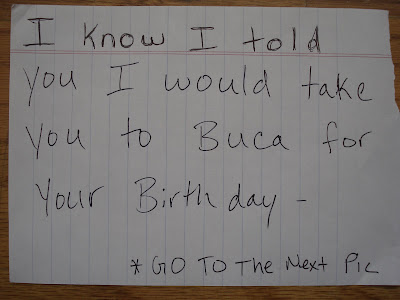 I know I told
you I would take
you to Buca for
your Birthday -
* GO TO The Next Pic